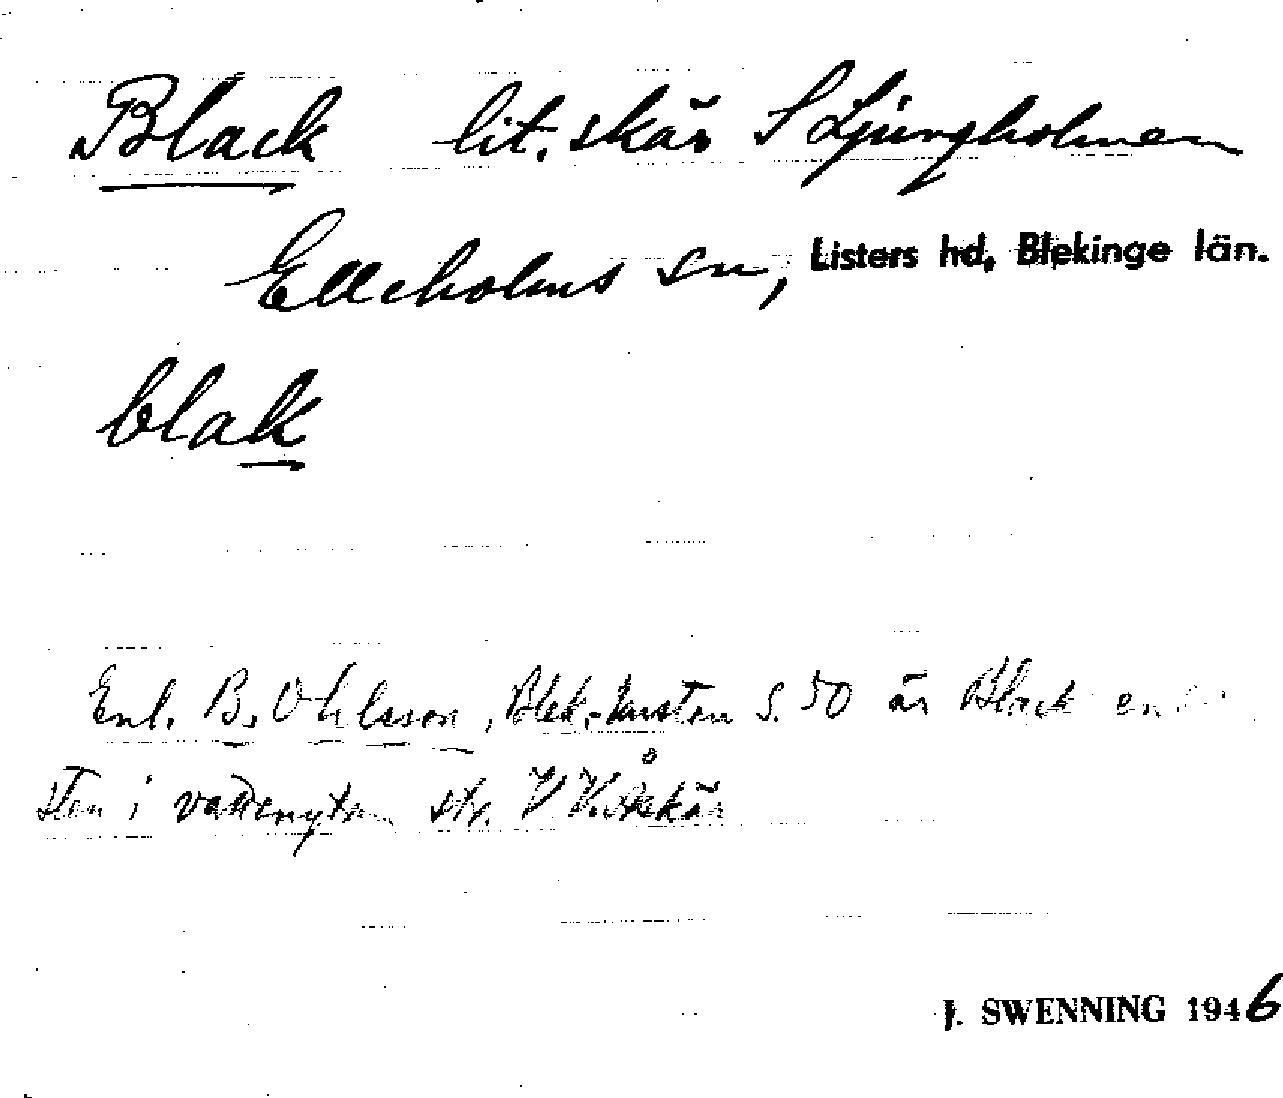 Black lit. skär S Ljungholmen
Elleholms sn, Listers hd, Blekinge län.
blak
Enl. B. Ohlsson, Blek.-kusten s. 50 är Black en
sten i vattenytan str. V V. Åskär
J. SWENNING 1946